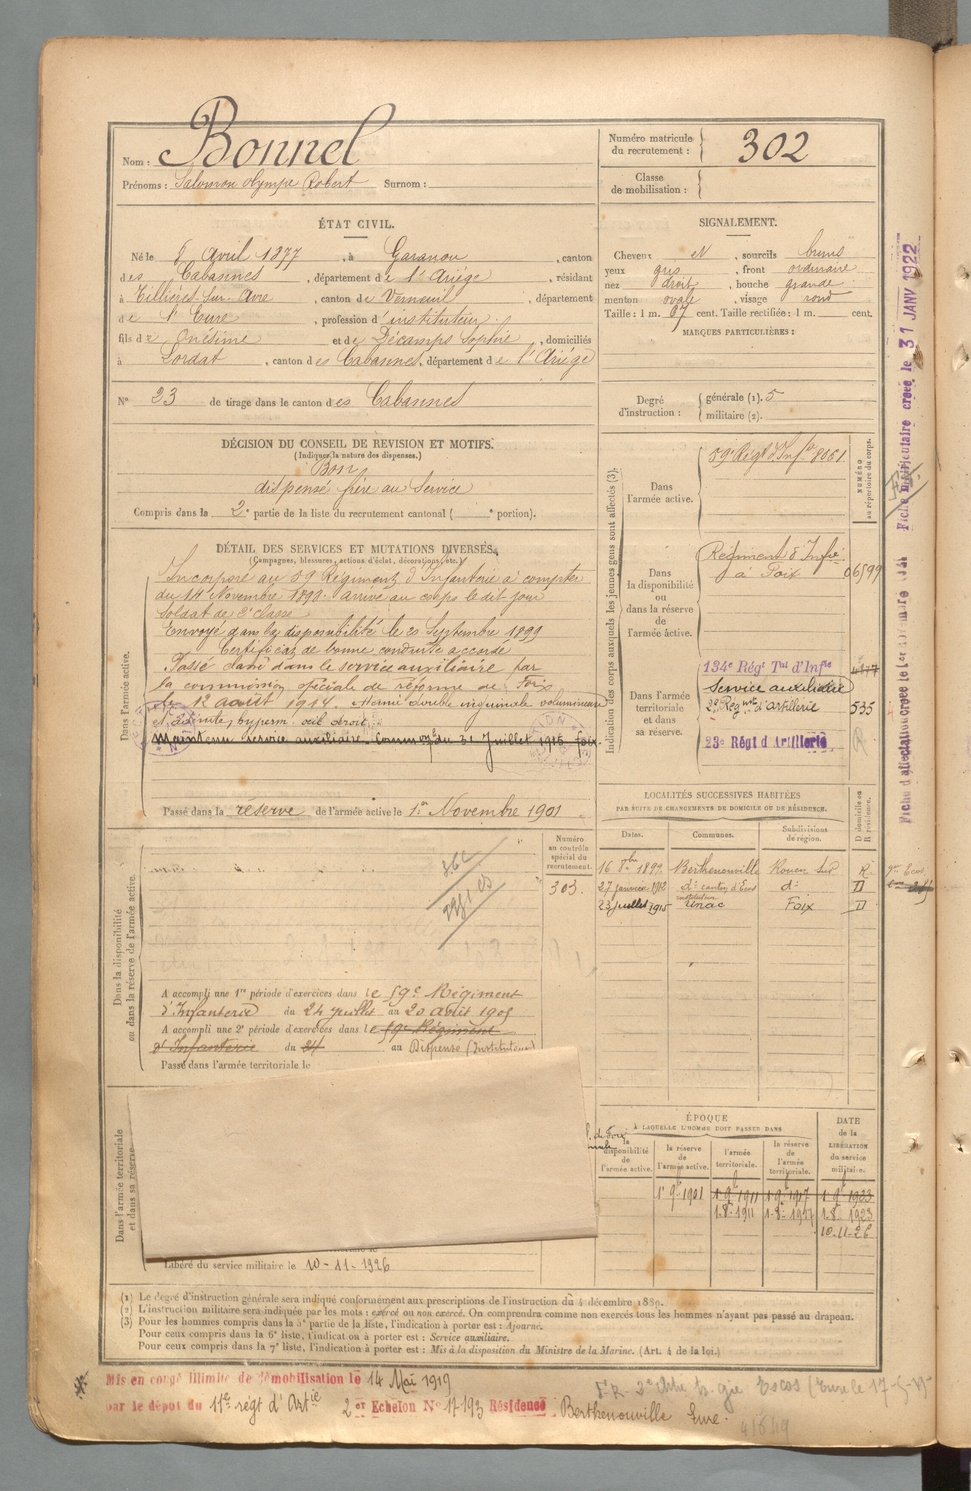 Nom : Bonnel
Prénoms : Salomon Olympe Robert Surnom :
Numéro matricule du recrutement : 302
Classe de mobilisation :
ÉTAT CIVIL.
Né le 6 Avril 1877, à Garanou, canton
des Cabannes, département de l'Ariège, résidant
à Tillières-sur-Avre, canton de Verneuil, département
de l'Eure, profession d'instituteur
fils de Onézime et de Décamps Sophie, domiciliés
à Lordat, canton des Cabannes, département de l'Ariége
N° 23 de tirage dans le canton des Cabannes
SIGNALEMENT.
Cheveux N, sourcils bruns
yeux gris, front ordinaire
nez droit, bouche grande
menton ovale, visage rond
Taille : 1 m. 67 cent. Taille rectifiée : 1 m. cent.
MARQUES PARTICULIÈRES :
Degré d'instruction : générale (1). 5
militaire (2).
DÉCISION DU CONSEIL DE REVISION ET MOTIFS.
(Indiquer la nature des dispenses.)
Bon
dispensé frère au Service
Compris dans la 2e partie de la liste du recrutement cantonal ( e portion).
DÉTAIL DES SERVICES ET MUTATIONS DIVERSES.
(Campagnes, blessures, actions d'éclat, décorations, etc.)
Dans l'armée active.
Incorporé au 59 Régiment d'Infanterie à compter
du 14 Novembre 1898. arrivé au corps le dit jour
soldat de 2e classe
Envoyé dans la disponibilité le 20 Septembre 1899
Certificat de bonne conduite accordé
Passé classé dans le service auxiliaire par
la commission spéciale de réforme de Foix
du 12 août 1914. Hernie double inguinale volumineuse
oeil droit
Maintenu service auxiliaire. Comm. du 31 Juillet 1915 Foix.
Passé dans la réserve de l'armée active le 1er Novembre 1901
Indication des corps auxquels les jeunes gens sont affectés (3).
NUMÉRO au répertoire du corps.
Dans l'armée active.
59e Régt d'Infie 8061
Dans la disponibilité ou dans la réserve de l'armée active.
Régiment d'Infie
à Foix 06599
Dans l'armée territoriale et dans sa réserve.
134e Régt Tal d'Infie
Service auxiliaire
2e Régiment d'artillerie 535
23e Régt d'Artillerie
LOCALITÉS SUCCESSIVES HABITÉES
PAR SUITE DE CHANGEMENTS DE DOMICILE OU DE RÉSIDENCE.
Dates. Communes. Subdivisions de région. D domicile ou R résidence.
16 8bre 1899 Berthenonville Rouen Sud R
27 janvier 1912 do canton d'Ecos do D
23 juillet 1915 Unac Foix D
Numéro au contrôle spécial du recrutement.
303.
Dans la disponibilité ou dans la réserve de l'armée active.
A accompli une 1re période d'exercices dans le 59e Régiment
d'Infanterie du 24 juillet au 20 août 1905
A accompli une 2e période d'exercices dans le 59e Régiment
d'Infanterie du 24 au Dispensé (Instituteur)
Passé dans l'armée territoriale le
Dans l'armée territoriale et dans sa réserve.
Libéré du service militaire le 10-11-1926
ÉPOQUE
À LAQUELLE L'HOMME DOIT PASSER DANS
la disponibilité de l'armée active. la réserve de l'armée active. l'armée territoriale. la réserve de l'armée territoriale.
DATE de la LIBÉRATION du service militaire.
1er 9bre 1901 1-9-1911 1-9-1917 1-9-1923
1-8-1911 1-8-1917 1-8-1923
10-11-26
(1) Le degré d'instruction générale sera indiqué conformément aux prescriptions de l'instruction du 4 décembre 1889.
(2) L'instruction militaire sera indiquée par les mots : exercé ou non exercé. On comprendra comme non exercés tous les hommes n'ayant pas passé au drapeau.
(3) Pour les hommes compris dans la 5e partie de la liste, l'indication à porter est : Ajourné.
Pour ceux compris dans la 6e liste, l'indication à porter est : Service auxiliaire.
Pour ceux compris dans la 7e liste, l'indication à porter est : Mis à la disposition du Ministre de la Marine. (Art. 4 de la loi.)
Mis en congé illimité de démobilisation le 14 Mai 1919
par le dépôt du 11e régt d'Artie 2e Echelon N° 17193 Résidence Berthenonville Eure.
Fiche matriculaire créée le 31 JANV 1922